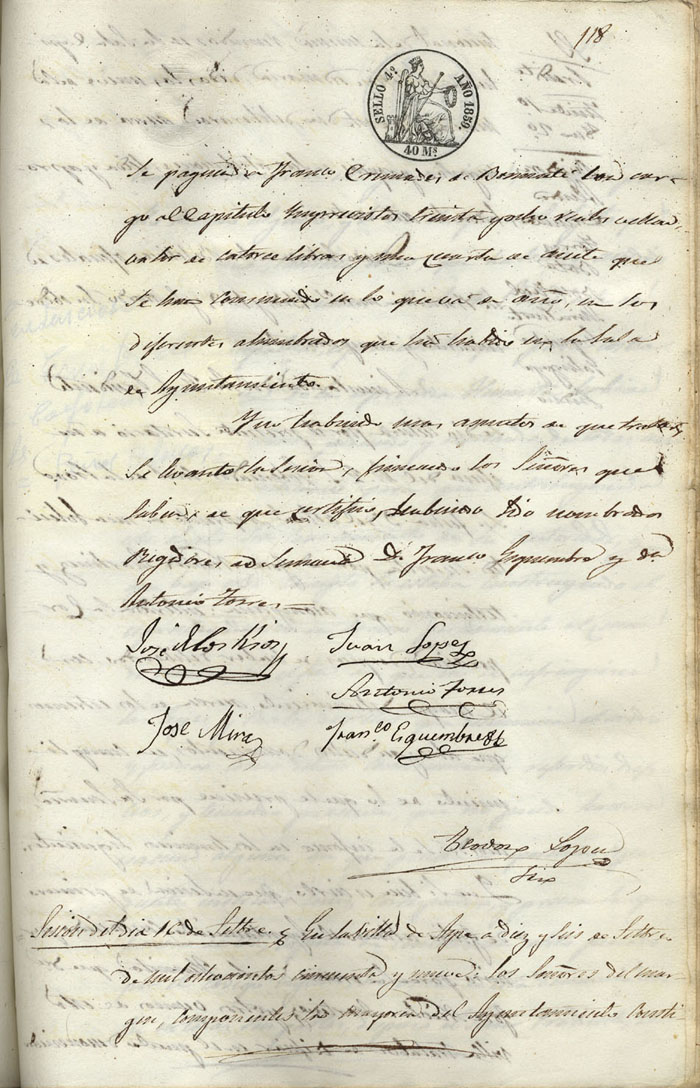 118
SELLO 4º AÑO 1859.
40 Ms
Se pague a Franco Cremades de Benineli con car-
go al Capitulo Imprevistos treinta y ocho reales vellon,
valor de catorce libras y una cuarta de aceite que
se han consumido en lo que va de año, en los
diferentes alumbrados que ha habido en la Sala
de Ayuntamiento.
Y no habiendo mas asuntos de que tratar
se levanto la sesion, firmando los Señores que
saben, de que certifico, habiendo sido nombrados
Regidores de Semana D. Franco Esquembre y dn
Antonio Torres.
José de los Rios Juan Lopez
Antonio Torres
Jose Mira Franco Esquembre
Teodoro
Srio
Sesion del dia 16 de Setbre. En la Villa de Aspe a diez y seis de Setbre
de mil ochocientos cincuenta y nueve: los Señores del mar-
gen, componentes la mayoria del Ayuntamiento consti